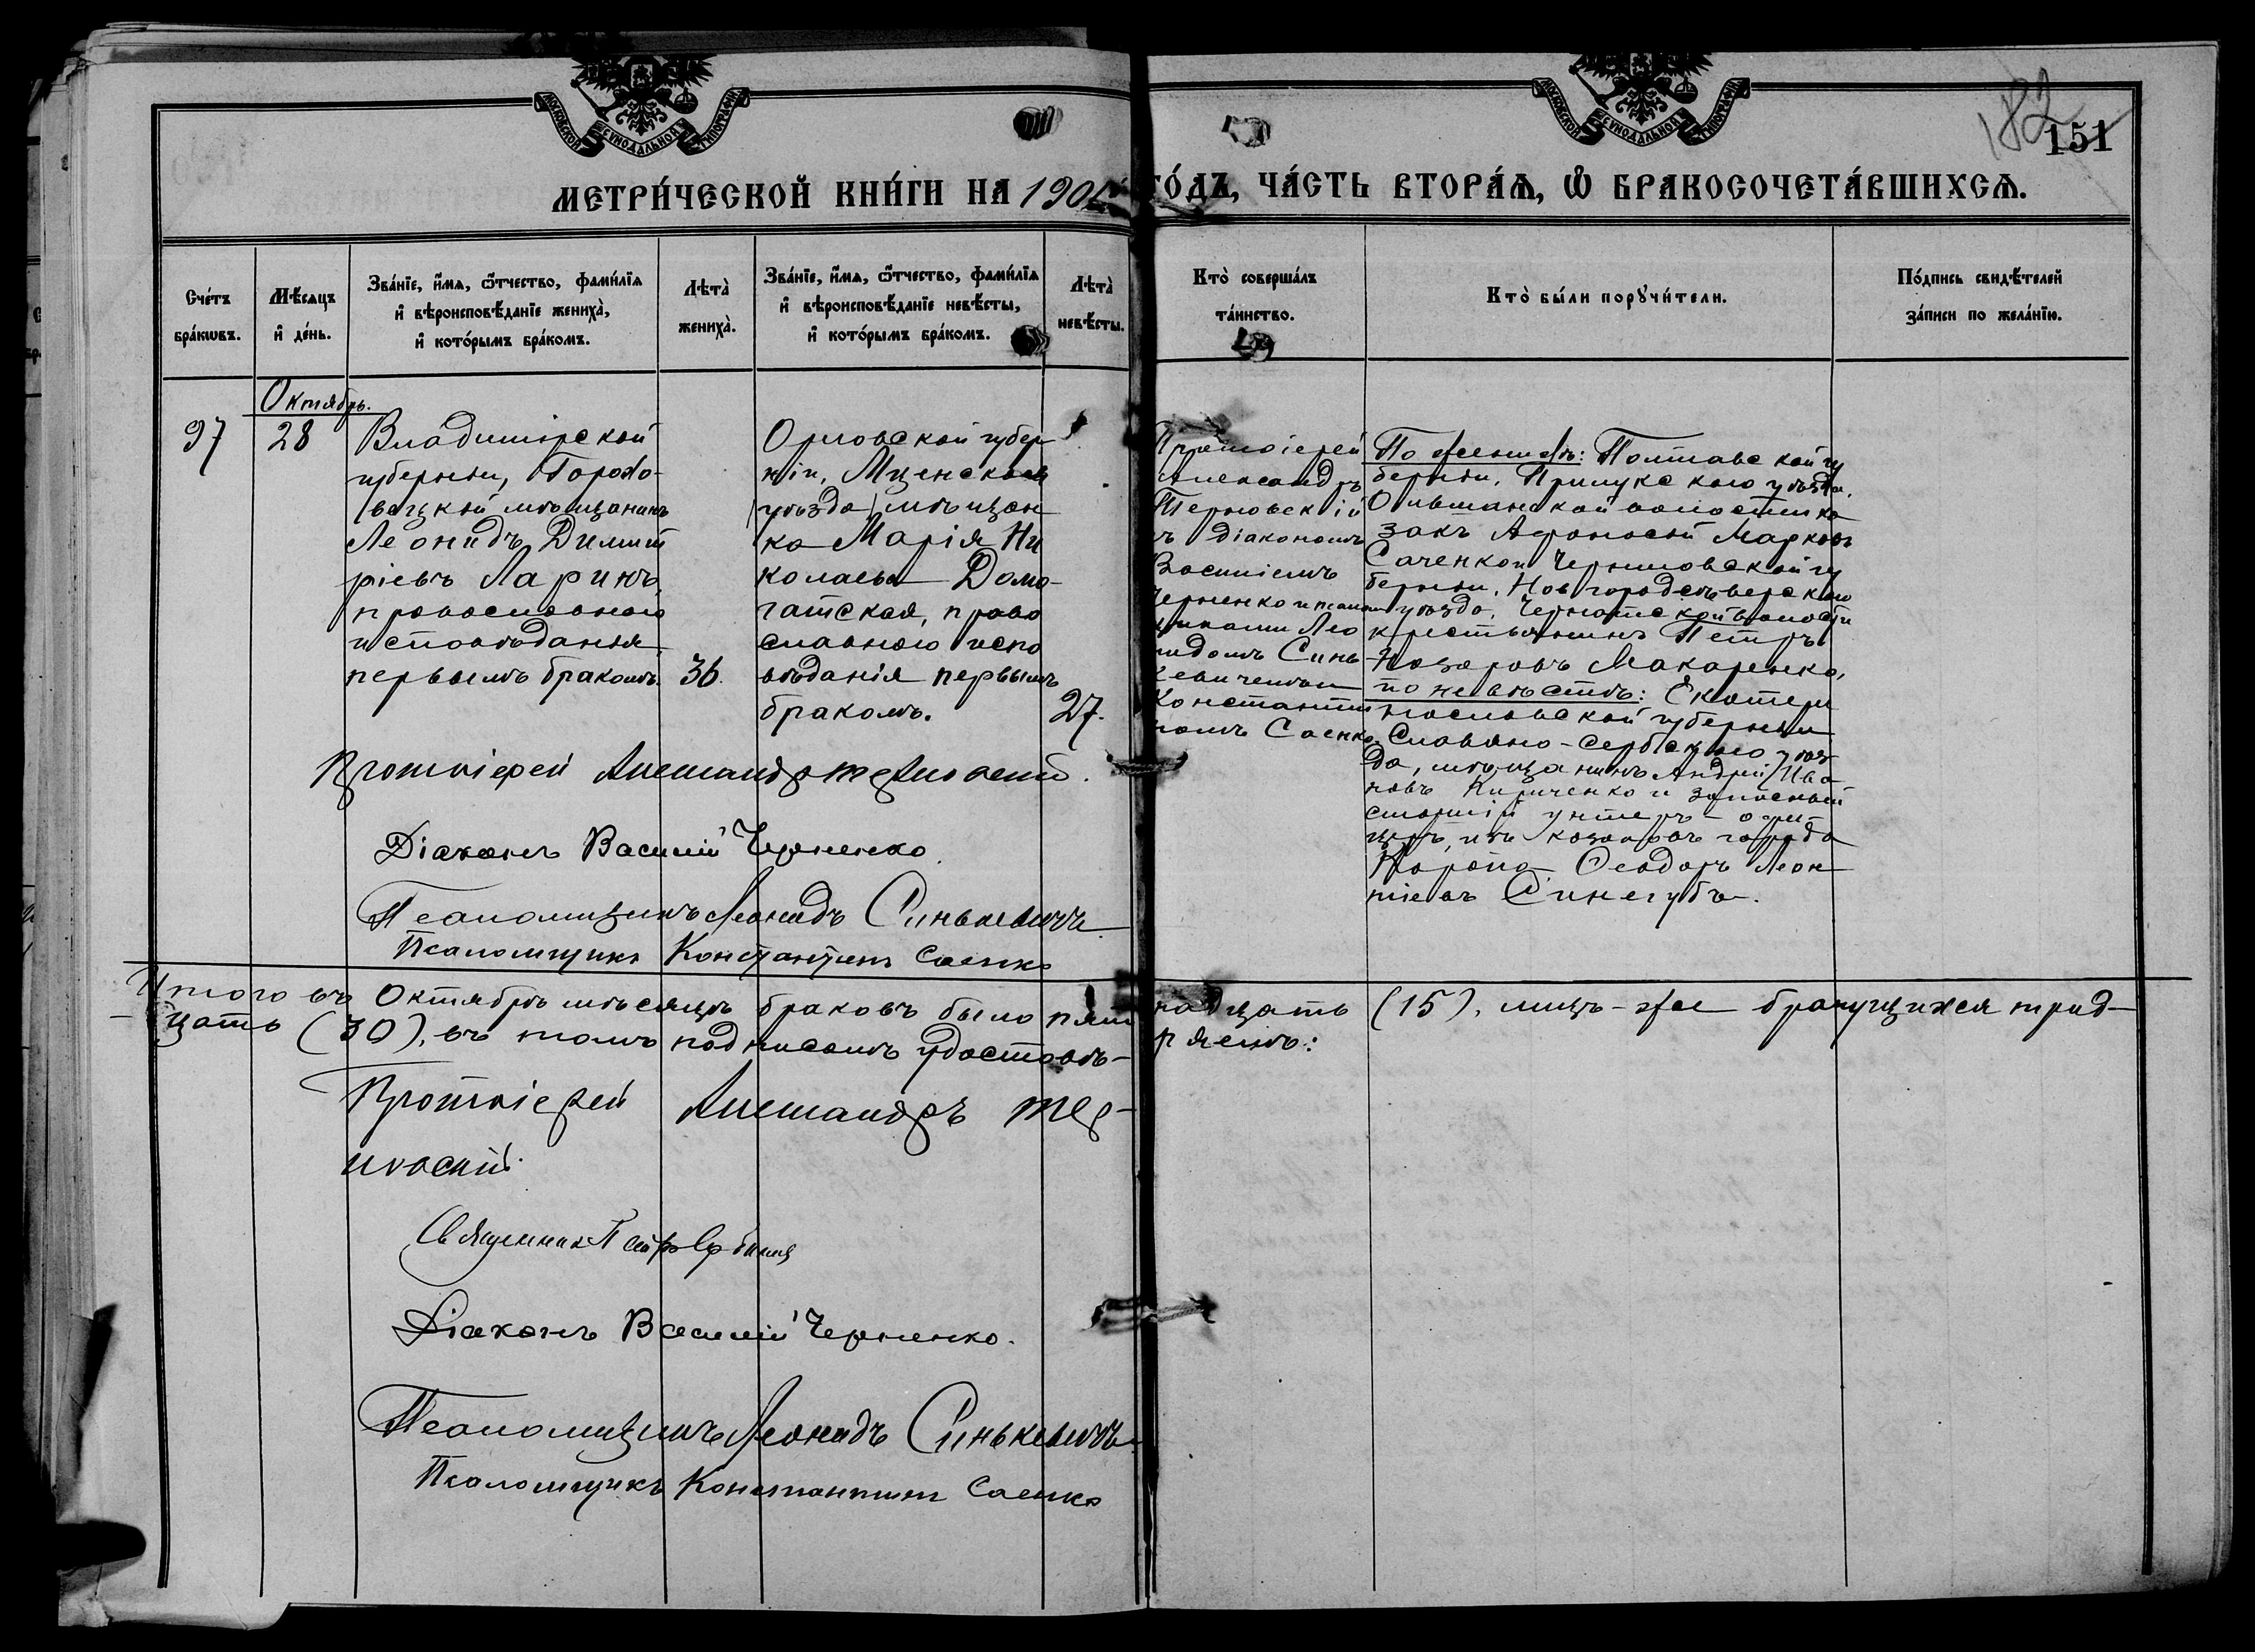 МОСКОВСКОЙ СѴНОДАЛЬНОЙ ТИПОГРАФІИ
МОСКОВСКОЙ СѴНОДАЛЬНОЙ ТИПОГРАФІИ
182
151
МЕТРИ́ЧЕСКОЙ КНИ́ГИ НА 190 ГО́ДЪ, ЧА́СТЬ ВТОРА́Ѧ, Ѽ БРАКОСОЧЕТА́ВШИХСѦ.
Сче́тъ
бра́кѡвъ.
Мѣ́сѧцъ
и҆ де́нь.
Зва́нїе, и҆́мѧ, ѻ҆́тчество, фами́лїѧ
и҆ вѣроисповѣ́данїе жениха̀,
и҆ кото́рымъ бра́комъ.
Лѣта̀
жениха̀.
Зва́нїе, и҆́мѧ, ѻ҆́тчество, фами́лїѧ
и҆ вѣроисповѣ́данїе невѣ́сты,
и҆ кото́рымъ бра́комъ.
Лѣта̀
невѣ́сты.
Кто̀ соверша́лъ
та́инство.
Кто̀ бы́ли порꙋчи́тели.
По́дпись свидѣ́телей
за́писи по жела́нїю.
Октябрь.
97
28
Владимірской
губерніи, Горохо-
вецкій мѣщанинъ
Леонидъ Димит
ріевъ Ларинъ,
православнаго
исповѣданія,
первымъ бракомъ.
36.
Орловской губер
ніи, Мценскаго
уѣзда мѣщан
ка Марія Ни
колаева Домо-
гатская, право
славнаго испо
вѣданія первымъ
бракомъ.
27.
Протоіерей
Александръ
Терновскій
съ діакономъ
Василіемъ
Черненко и псалом
щиками Лео
нидомъ Синь
кевичемъ и
Константи
номъ Саенко.
По женихѣ: Полтавской гу
берніи, Прилукскаго уѣзда,
Ольшанской волости ка
закъ Афанасій Марковъ
Саченко и Черниговской гу
берніи, Новгородсѣверскаго
уѣзда, Чернатской волости
крестьянинъ Петръ
Назаровъ Макаренко,
по невѣстѣ: Екатери
нославской губерніи
Славяно-Сербскаго уѣз
да, мѣщанинъ Андрей Ива
новъ Кириченко и запасный
старшій унтеръ-офи-
церъ, изъ казаковъ города
Коропа Ѳеодоръ Леон
тіевъ Синегубъ.
Протоіерей Александръ Терновскій.
Діаконъ Василій Черненко.
Псаломщикъ Леонидъ Синькевичъ
Псаломщикъ Константинъ Саенко
Итого въ Октябрѣ мѣсяцѣ браковъ было пятнадцать (15), лицъ-же брачущихся трид-
цать (30), въ томъ подписомъ удостовѣ-ряемъ:
Протоіерей Александръ Тер-
новскій.
Священникъ Петръ
Діаконъ Василій Черненко.
Псаломщикъ Леонидъ Синькевичъ
Псаломщикъ Константинъ Саенко